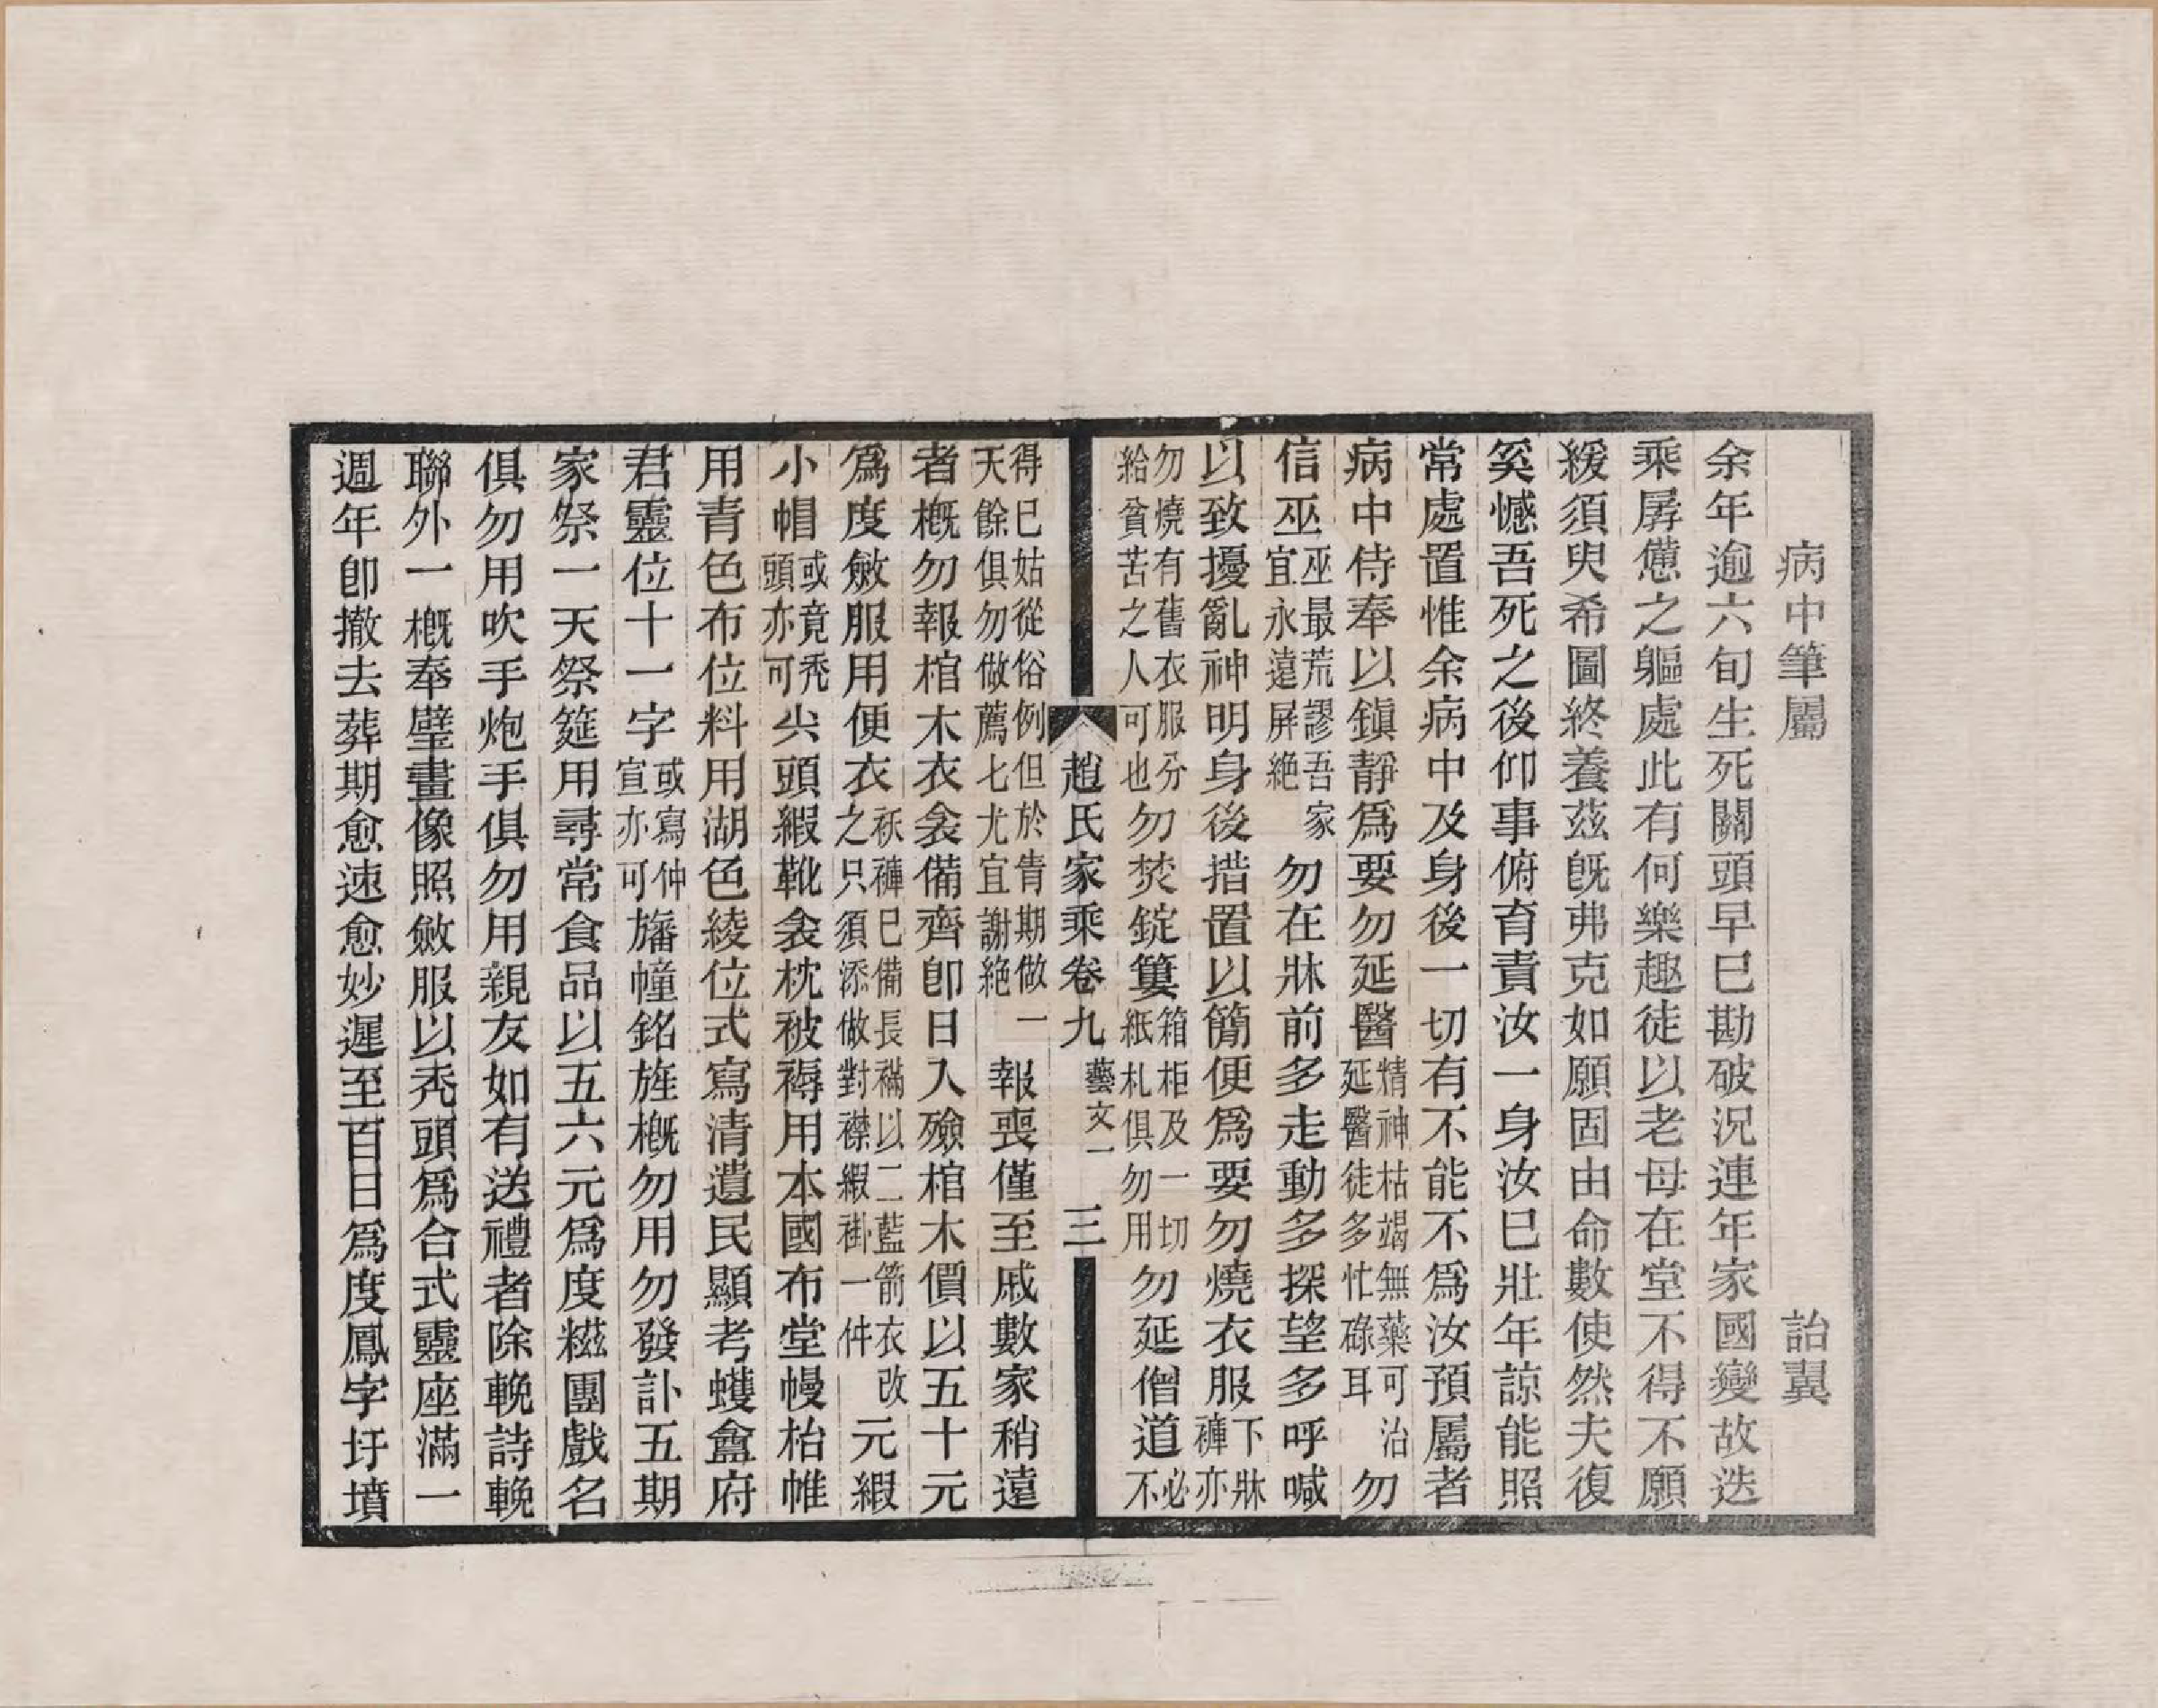 病中筆屬　詒翼
余年逾六旬生死關頭早巳勘破況連年家國變故迭
乘孱憊之軀處此有何樂趣徒以老母在堂不得不願
緩須臾希圖終養茲旣弗克如願固由命數使然夫復
奚憾吾死之後仰事俯育責汝一身汝巳壯年諒能照
常處置惟余病中及身後一切有不能不爲汝預屬者
病中侍奉以鎭靜爲要勿延醫精神枯竭無藥可治延醫徒多忙碌耳勿
信巫巫最荒謬吾家宜永遠屛絶勿在牀前多走動多探望多呼喊
以致擾亂神明身後措置以簡便爲要勿燒衣服下牀褲亦
勿燒有舊衣服分給貧苦之人可也勿焚錠箱柜及一切紙札俱勿用勿延僧道必不
得巳姑從俗例但於青期做一天餘俱勿做薦七尤宜謝絶報喪僅至戚數家稍遠
者槪勿報棺木衣衾備齊卽日入殮棺木價以五十元
爲度斂服用便衣袄褲巳備長襔以二藍箭衣改之只須添做對襟緞褂一件元緞
小帽或竟秃頭亦可尖頭緞靴衾枕被褥用本國布堂幔枱帷
用青色布位料用湖色綾位式寫清遺民顯考蠖盦府
君靈位十一字或寫仲宣亦可旛幢銘旌槪勿用勿發訃五期
家祭一天祭筵用尋常食品以五六元爲度糍團戲名
俱勿用吹手炮手俱勿用親友如有送禮者除輓詩輓
聯外一槪奉璧畫像照斂服以秃頭爲合式靈座滿一
週年卽撤去葬期愈速愈妙遲至百日爲度鳳字圩墳
趙氏家乘卷九　藝文一　三